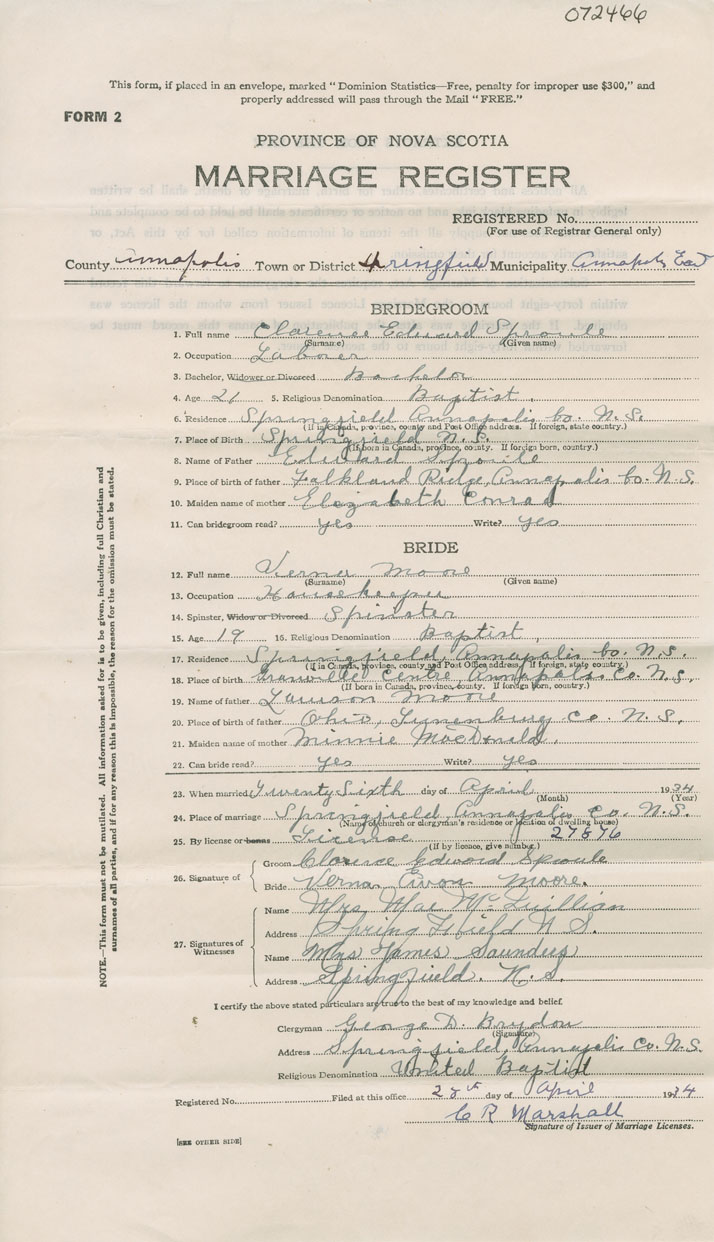 072466
This form, if placed in an envelope, marked "Dominion Statistics—Free, penalty for improper use $300," and
properly addressed will pass through the Mail "FREE."
FORM 2
PROVINCE OF NOVA SCOTIA
MARRIAGE REGISTER
REGISTERED No.
(For use of Registrar General only)
County Annapolis Town or District Springfield Municipality Annapolis East
BRIDEGROOM
1. Full name Clarence Edward Sproule
(Surname) (Given name)
2. Occupation Laborer
3. Bachelor, Widower or Divorced Bachelor
4. Age 21 5. Religious Denomination Baptist.
6. Residence Springfield Annapolis Co. N.S.
(If in Canada, province, county and Post Office address. If foreign, state country.)
7. Place of Birth Springfield N.S.
(If born in Canada, province, county. If foreign born, country.)
8. Name of Father Edward Sproule
9. Place of birth of father Falkland Ridge, Annapolis Co. N.S.
10. Maiden name of mother Elizabeth Conrad
11. Can bridegroom read? yes Write? yes
BRIDE
12. Full name Verna Moore
(Surname) (Given name)
13. Occupation Housekeeper
14. Spinster, Widow or Divorced Spinster
15. Age 19 16. Religious Denomination Baptist,
17. Residence Springfield, Annapolis Co. N.S.
(If in Canada, province, county and Post Office address. If foreign, state country.)
18. Place of birth Granville Centre, Annapolis Co. N.S.
(If born in Canada, province, county. If foreign born, country.)
19. Name of father Lawson Moore
20. Place of birth of father Ohio, Lunenburg Co. N.S.
21. Maiden name of mother Minnie MacDonald.
22. Can bride read? yes Write? yes
23. When married Twenty Sixth day of April 1934
(Month) (Year)
24. Place of marriage Springfield, Annapolis Co. N.S.
(Name of church or clergyman's residence or location of dwelling house)
25. By license or banns License 27876
(If by licence, give number.)
26. Signature of
Groom Clarence Edward Sproule
Bride Verna Moore.
27. Signatures of Witnesses
Name Mrs Mae McQuillian
Address Springfield N S.
Name Mrs James Saunders
Address Springfield. N.S.
I certify the above stated particulars are true to the best of my knowledge and belief.
Clergyman George D. Brydon
(Signature)
Address Springfield, Annapolis Co. N.S.
Religious Denomination United Baptist
Registered No. Filed at this office 28th day of April 1934
C R Marshall
Signature of Issuer of Marriage Licenses.
[SEE OTHER SIDE]
NOTE.—This form must not be mutilated. All information asked for is to be given, including full Christian and
surnames of all parties, and if for any reason this is impossible, the reason for the omission must be stated.